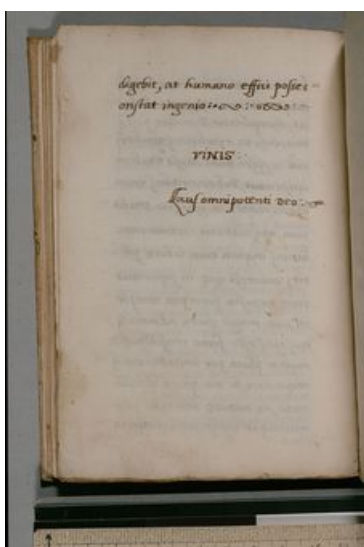 digebit, at humano effici posse c-
onstat ingenio
FINIS
Laus omnipotenti deo